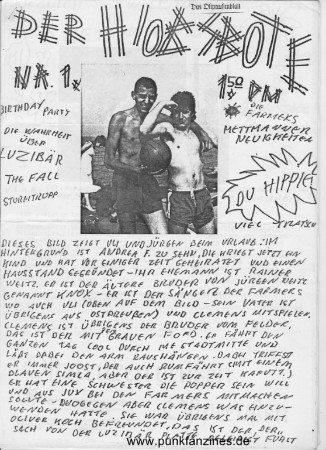 Das Ostpreußenblatt
DER HIOBSBOTE
NR. 1.
1.50 DM
BIRTHDAY PARTY
DIE WAHRHEIT
ÜBER
LUZIBÄR
THE FALL
STÖRNITROPP
DIE
FARMERS
METTMANNER
NEUIGKEITEN
DU HIPPIE!
VIEL TRATSCH
DIESES BILD ZEIGT ULI UND JÜRGEN BEIM URLAUB: IM
HINTERGRUND IST ANDREA F. ZU SEHN, DIE KRIEGT JETZT EIN
KIND UND HAT VOR EINIGER ZEIT GEHEIRATET UND EINEN
HAUSSTAND GEGRÜNDET - IHR EHEMANN IST RAINER
WEITZ. ER IST DER ÄLTERE BRUDER VON JÜRGEN WEITZ
GENANNT KNOX - ER IST DER SÄNGER DER FARMERS
WO AUCH ULI (OBEN AUF DEM BILD - SEIN VATER IST
ÜBRIGENS AUS OSTPREUßEN) UND CLEMENS MITSPIELEN.
CLEMENS IST ÜBRIGENS DER BRUDER VOM
DAS IST DER MIT'M BRAUNEN FORD. ER FÄHRT DEN
GANZEN TAG COOL DURCH METTMANN STADTMITTE UND
LÄßT DABEI DEN ARM RAUSHÄNGEN. DABEI TRIFFST
ER IMMER JOOST, DER AUCH RUMFÄHRT (MIT EINEM
BLAUEN SIMCA, ABER DER IST ZUR ZEIT KAPUTT.)
ER HAT EINE SCHWESTER DIE POPPER SEIN WILL
UND AUS JUX BEI DEN FARMERS MITMACHEN
SOLLTE - WOGEGEN ABER CLEMENS WAS EINZU-
WENDEN HATTE. SIE WAR ÜBRIGENS MAL MIT
OLIVER KOCH BEFREUNDET, DAS IST DER, DER
SICH VON DER LUZIBÄR SEITE BELEIDIGT FÜHLT
www.punkfanzines.de